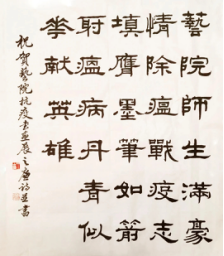 藝院師生滿豪
情除瘟戰疫志
填膺墨筆如箭
射瘟病丹青似
華献英雄
祝賀藝院抗疫書畫展